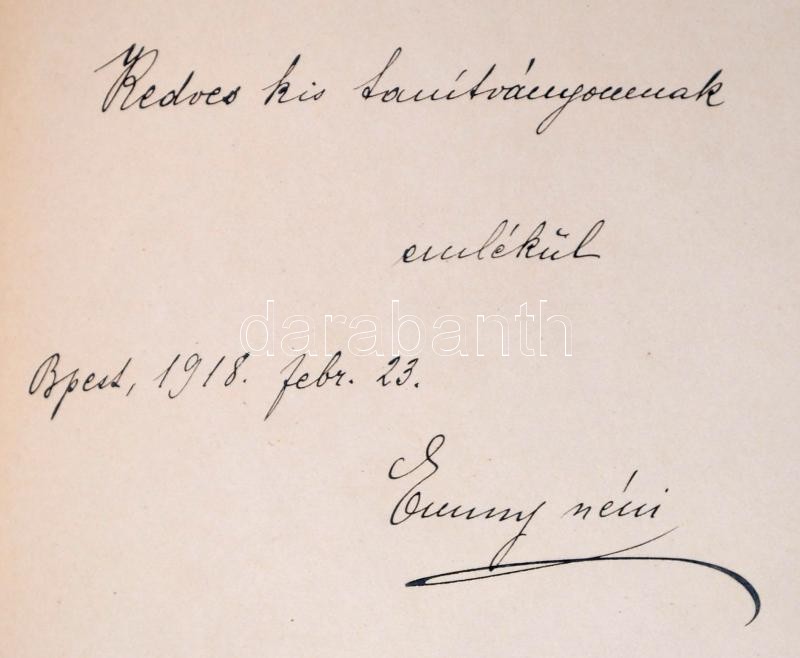 Kedves kis tanítványomnak
emlékül
darabanth
Bpest, 1918. febr. 23.
Emmy néni